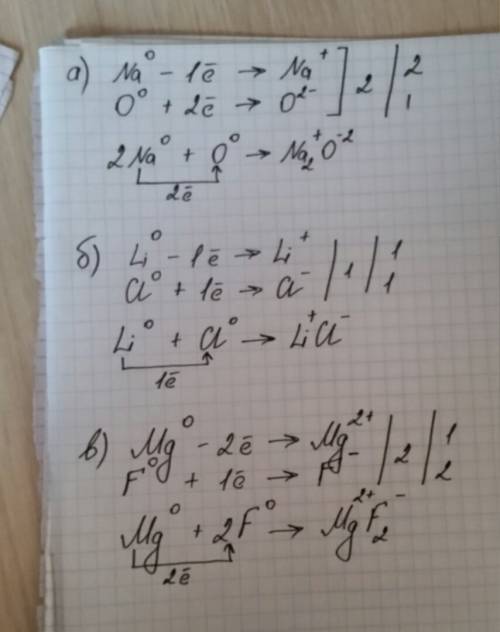 а) Na⁰ - 1ē → Na⁺ ] 2 | 2
O⁰ + 2ē → O²⁻ ] | 1
2Na⁰ + O⁰ → Na₂⁺O⁻²
2ē
б) Li⁰ - 1ē → Li⁺ | 1 | 1
Cl⁰ + 1ē → Cl⁻ | | 1
Li⁰ + Cl⁰ → Li⁺Cl⁻
1ē
в) Mg⁰ - 2ē → Mg²⁺ | 2 | 1
F⁰ + 1ē → F⁻ | | 2
Mg⁰ + 2F⁰ → Mg²⁺F₂⁻
2ē